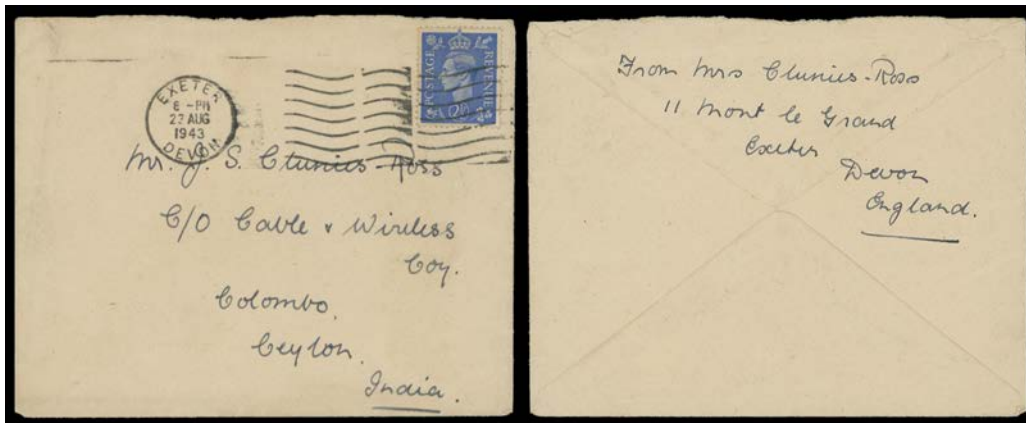 EXETER
8 - PM
22 AUG
1943
DEVON
POSTAGE
REVENUE
2½D
Mr. J. S. Clunies-Ross
C/O Cable & Wireless
Coy.
Colombo,
Ceylon,
India.
From Mrs Clunies-Ross
11 Mont le Grand
Exeter
Devon
England.